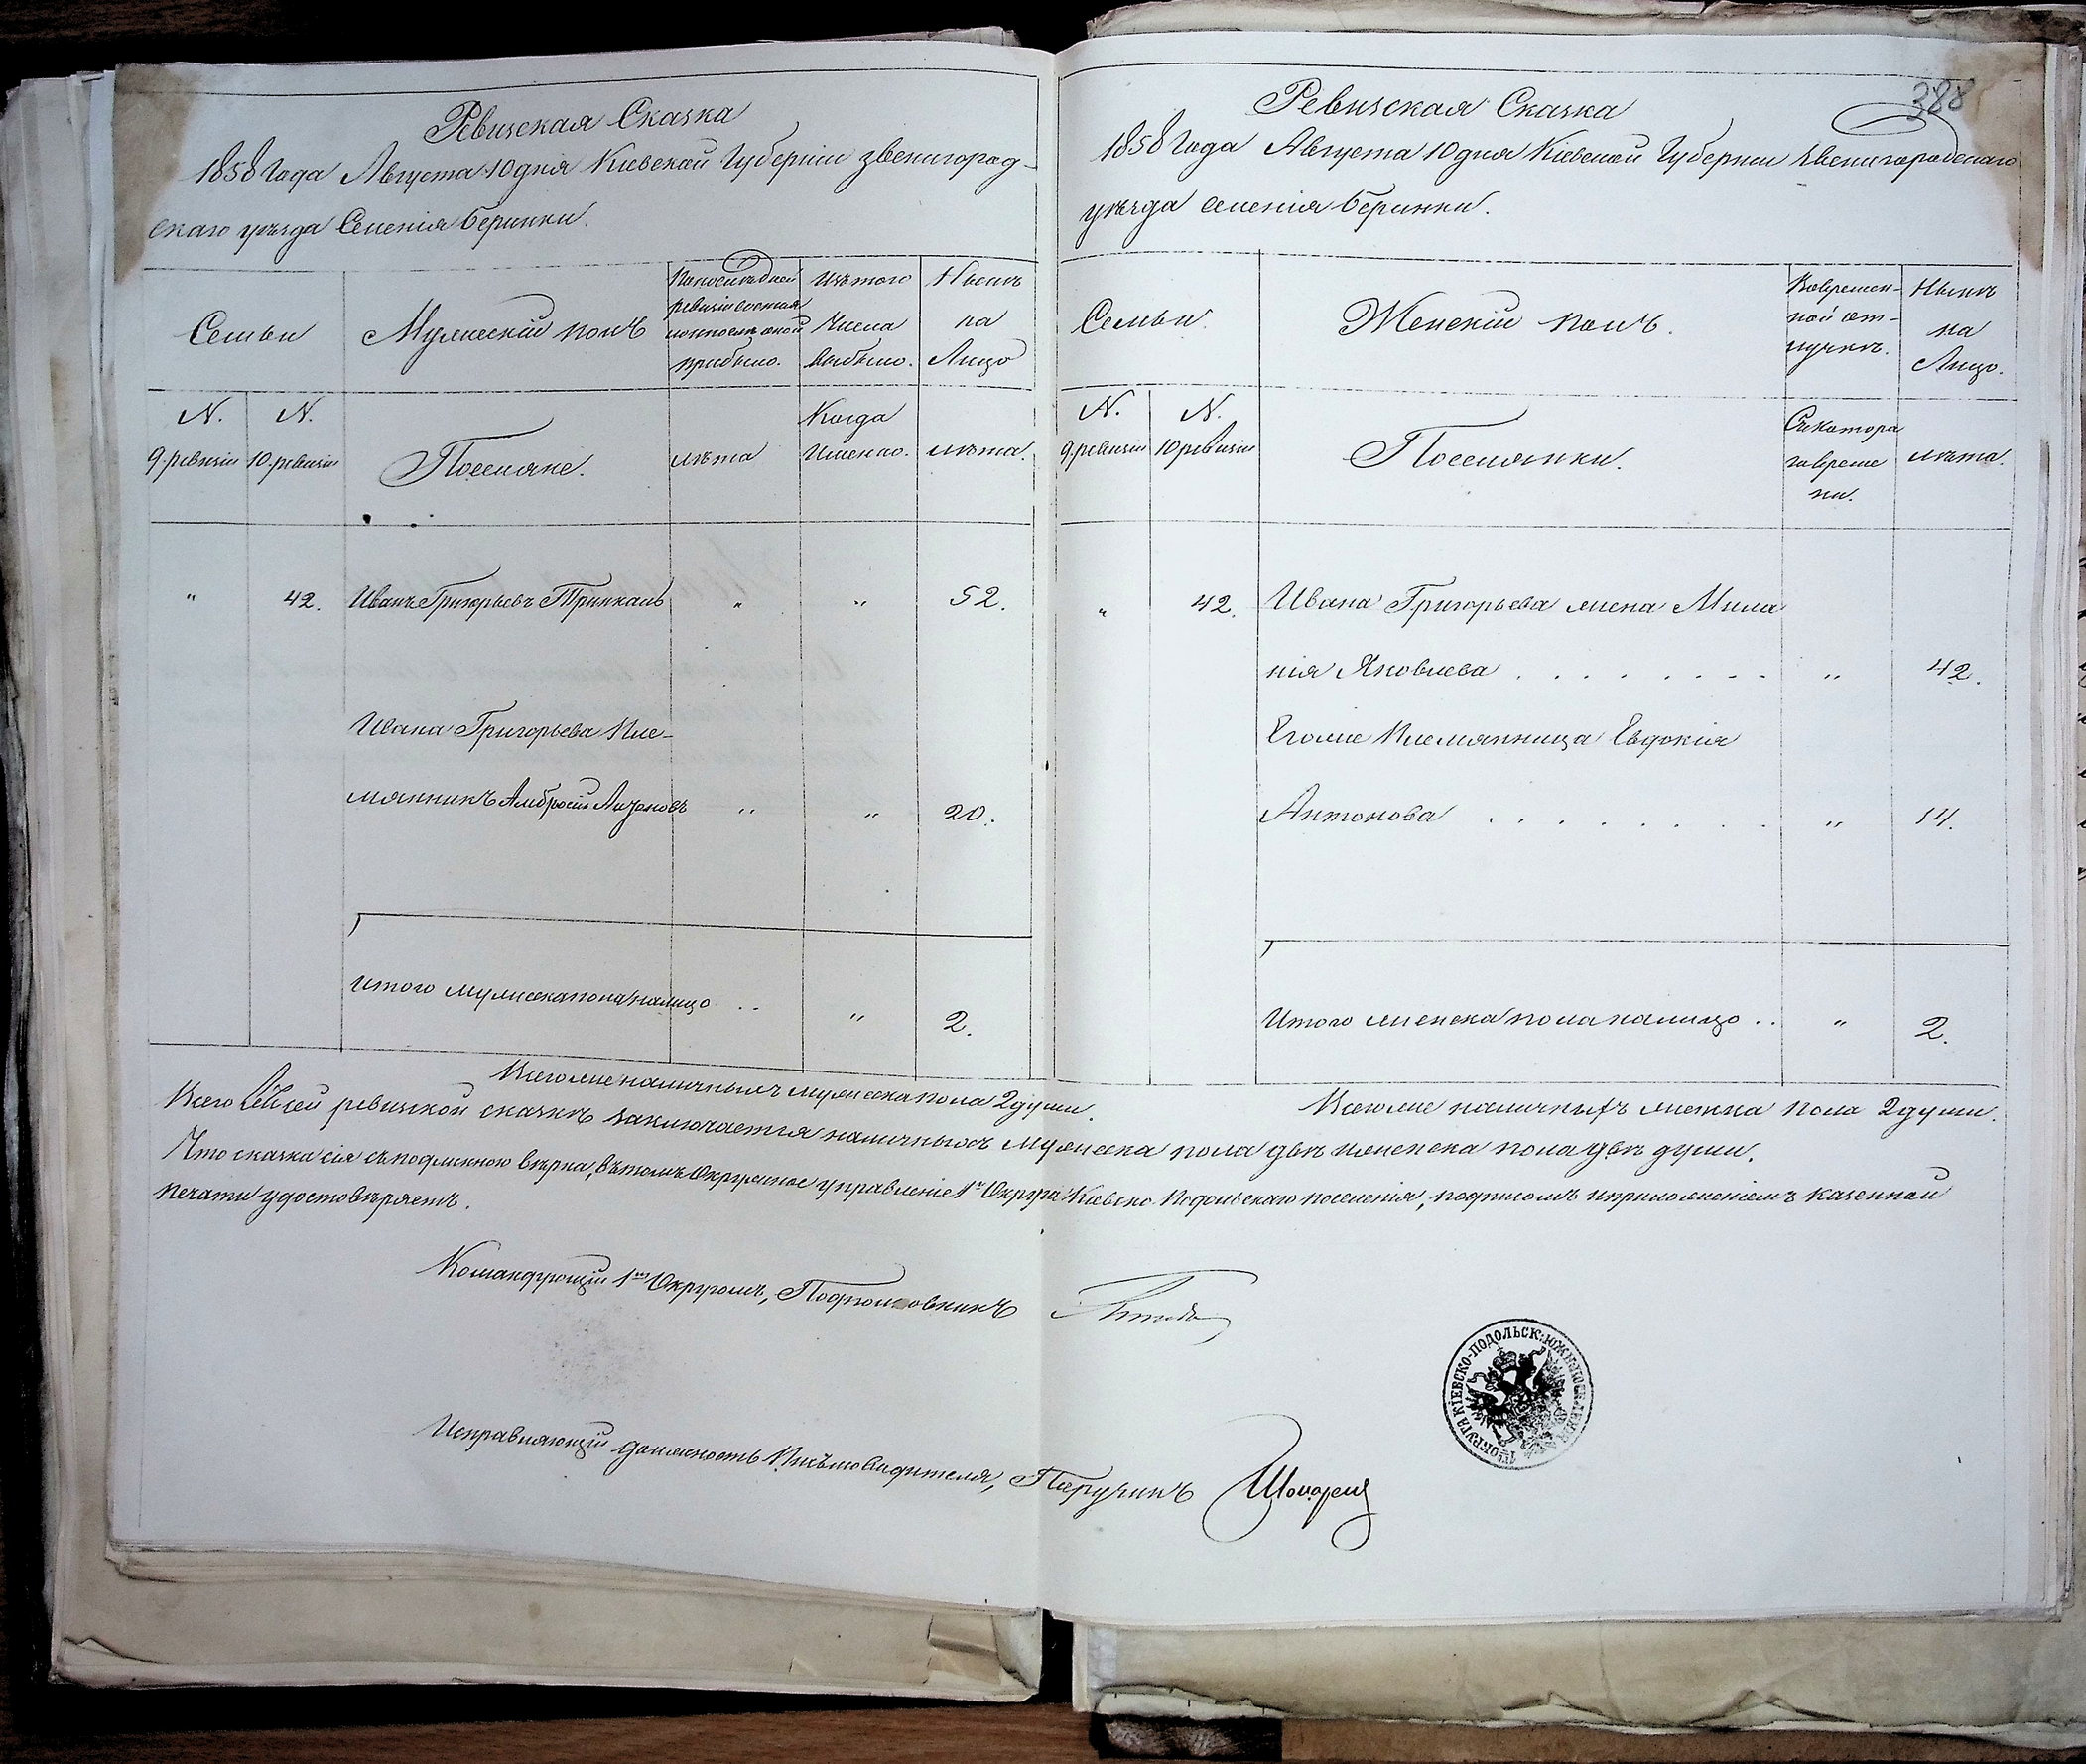 Ревизская Сказка
1858 Года Августа 10 дня Киевской Губернии Звенигород-
скаго уѣзда Селенія Беринки.
Семьи
Мужескій полъ
По последней
ревизіи состояло
и после оной
прибыло.
Изъ того
числа
выбыло.
Нынѣ
на
Лицо
N.
9. ревизіи
N.
10. ревизіи
Поселяне.
лѣта
Когда
Именно.
лѣта.
" 42. Иванъ Григорьевъ Тринкаль " " 52.
Ивана Григорьева Пле-
мянникъ Амбросій Антоновъ " " 20.
Итого мужеска пола налицо .. " 2.
Всего же наличныхъ мужеска пола 2 души.
388
Ревизская Сказка
1858 Года Августа 10 дня Кіевской Губерніи Звенигородскаго
уѣзда селенія Беринки.
Семьи.
Женскій полъ.
Во времен-
ной от-
лучкѣ.
Нынѣ
на
Лицо.
N.
9. ревизіи
N.
10 ревизіи
Поселянки.
Съ котора
го време
ни.
лѣта.
" 42. Ивана Григорьева жена Мила
нія Яковлева . . . . . . . . " 42.
Его же Племянница Евдокія
Антонова . . . . . . . . " 14.
Итого женска пола налицо .. " 2.
Всего же наличныхъ женска пола 2 души.
Всего в сей ревизской сказкѣ заключается наличныхъ мужеска пола двѣ и женска пола двѣ души.
Что сказка сія съ подлинною вѣрна, въ томъ Окружное управленіе 1го Округа Кіевско Подольскаго поселенія, подписомъ и приложеніемъ казенной
печати удостовѣряетъ.
Командующій 1мъ Округомъ, Подполковникъ
Исправляющій должность Письмоводителя, Поручикъ
1го ОКРУГА КІЕВСКО-ПОДОЛЬСК: ЮЖН: ПОСЕЛЕНІЯ